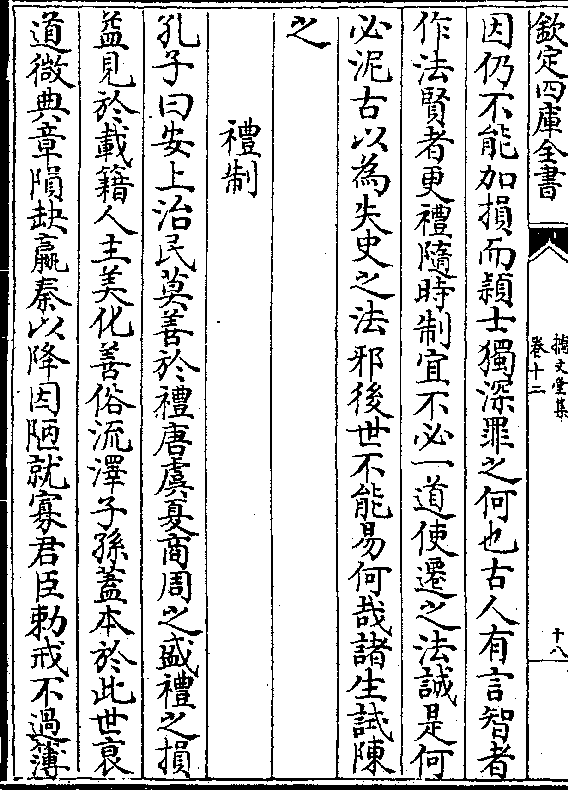 欽定四庫全書
摛文堂集
卷十二
十八
因仍不能加損而頴士獨深罪之何也古人有言智者
作法賢者更禮隨時制宜不必一道使遷之法誠是何
必泥古以為失史之法邪後世不能易何哉諸生試陳
之
禮制
孔子曰安上治民莫善於禮唐虞夏商周之盛禮之損
益見於載籍人主美化善俗流澤子孫蓋本於此世衰
道微典章隕缺嬴秦以降因陋就寡君臣勅戒不過簿